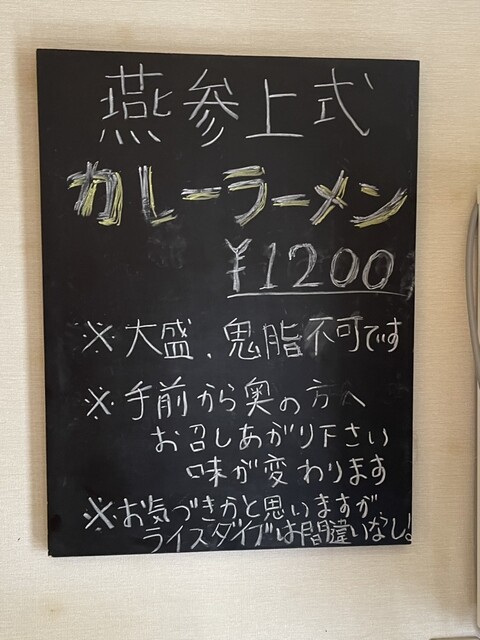 燕参上式
カレーラーメン
¥1200
※大盛、鬼脂不可です
※手前から奥の方へ
お召しあがり下さい
味が変わります
※お気づきかと思いますが
ライスダイブは間違いなし!